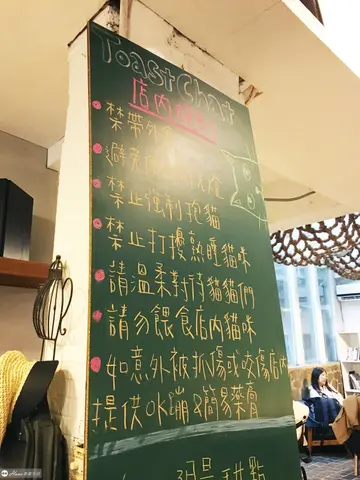 Toast Chat
店內
禁帶外
避免
禁止強制抱貓
禁止打擾熟睡貓咪
請溫柔對待貓貓們
請勿餵食店內貓咪
如意外被抓傷或咬傷店內
提供OK蹦&簡易藥膏